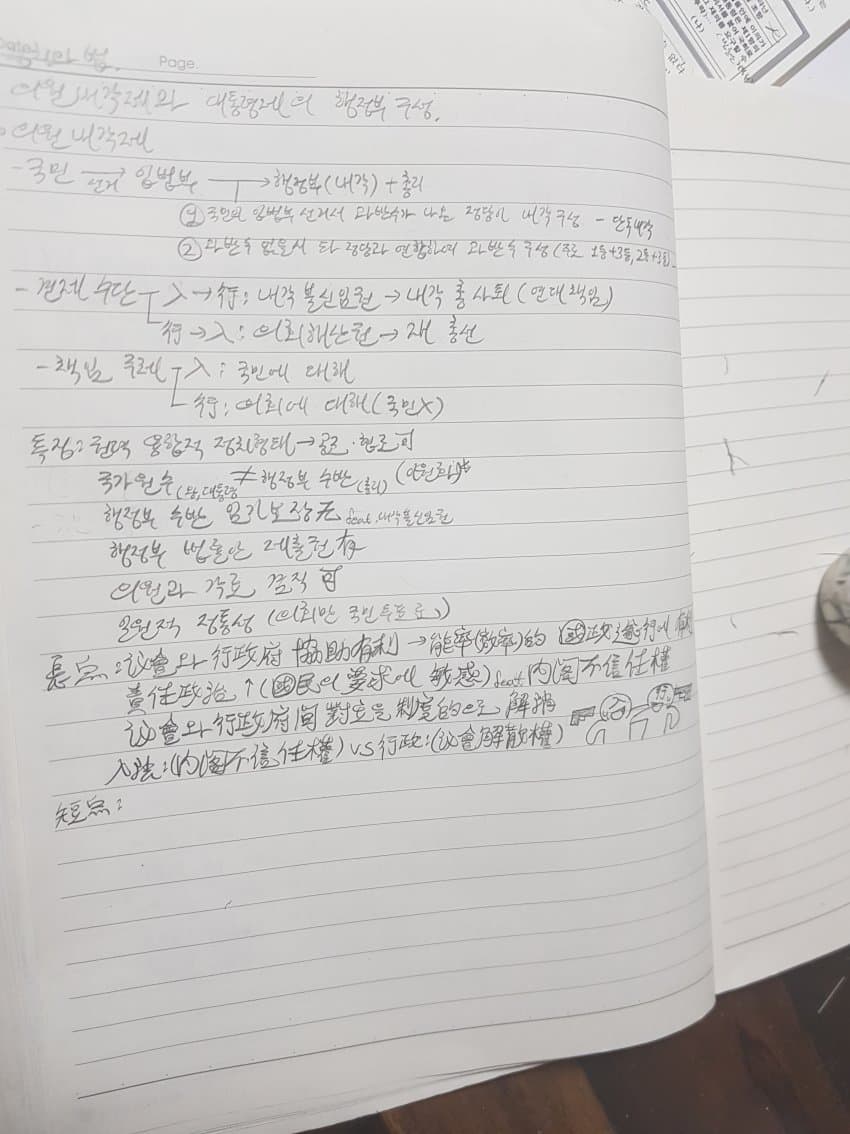 정치와 법.
Page.
의원내각제와 대통령제의 행정부 구성.
의원내각제
- 국민 선거→ 입법부 → 행정부(내각)+총리
① 국민의 입법부 선거서 과반수가 나온 정당이 내각구성 - 단독내각
② 과반수 없을시 타 정당과 연합하여 과반수 구성(주로 1등+3등, 2등+3등)
- 견제 수단 入→行: 내각불신임권→내각 총사퇴(연대책임)
行→入: 의회해산권→재 총선
- 책임 주체 入: 국민에 대해
行: 의회에 대해(국민X)
특징: 권력 융합적 정치형태→공조·협조 可
국가원수(왕,대통령) ≠ 행정부 수반(총리)
행정부 수반 임기보장無 feat.내각불신임권
행정부 법률안 제출권 有
의원과 각료 겸직 可
일원적 정통성 (의회만 국민투표로)
長点: 议會와 行政府 協助有利→能率(效率)的 國政遂行에 有利
責任政治↑(國民의 要求에 敏感)feat 内閣不信任權
议會와 行政府间 對立을 制度的으로 解消
入法:(内閣不信任權) VS 行政:(议會解散權)
短点: